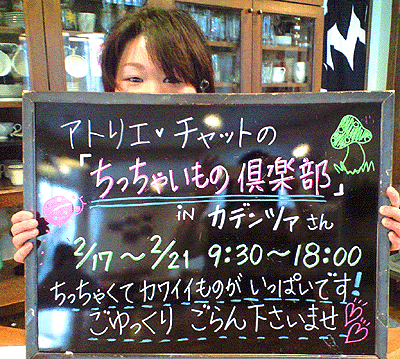 アトリエ・チャットの
「ちっちゃいもの倶楽部」
iN カデンツァ さん
2/17〜2/21 9:30〜18:00
ちっちゃくて カワイイものが いっぱいです!
ごゆっくり ごらん下さいませ